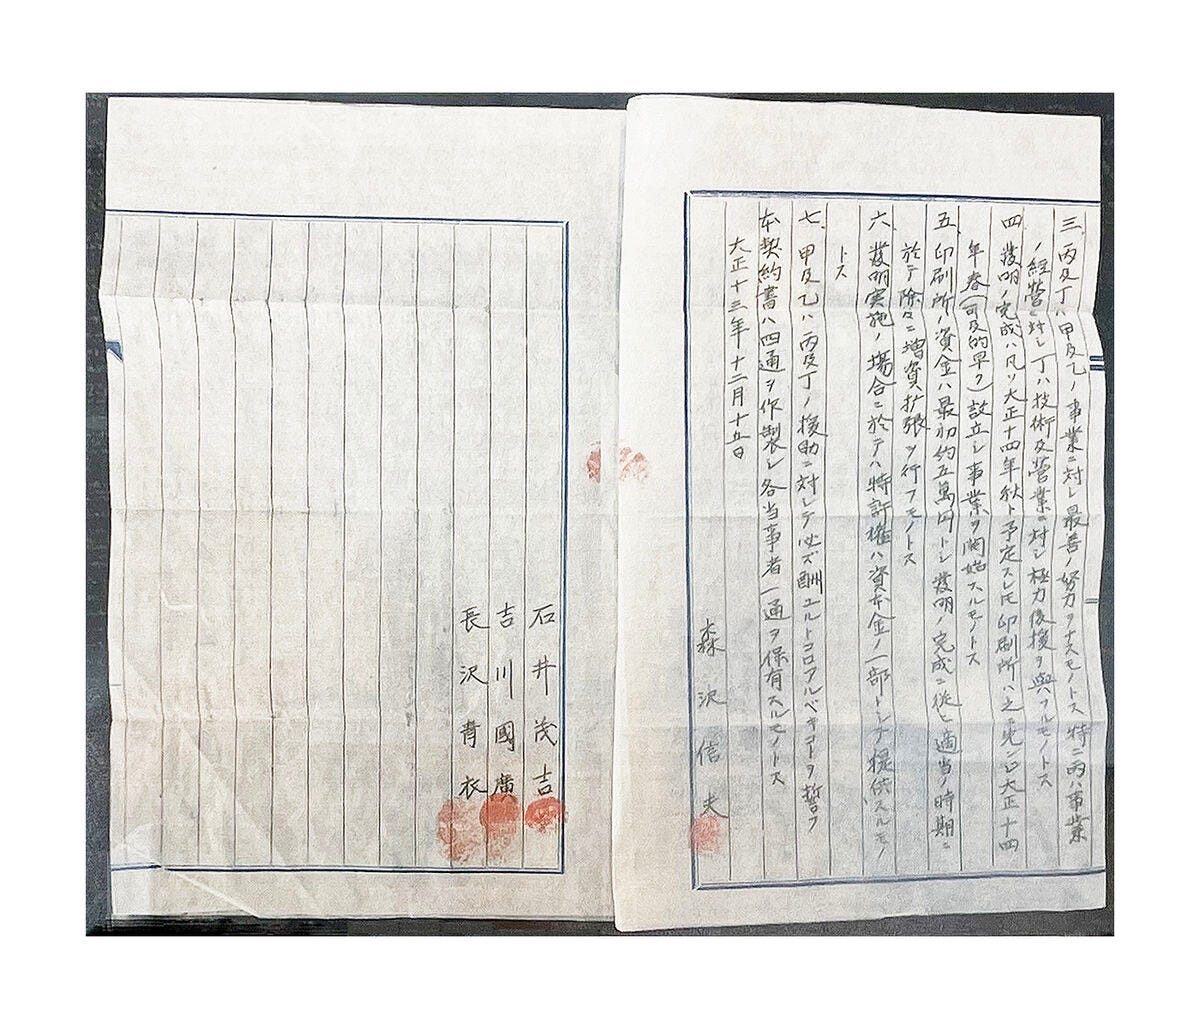 三、丙及丁ハ甲及乙ノ事業ニ対シ最善ノ努力ヲナスモノトス特ニ丙ハ事業
ノ経営ニ対シ丁ハ技術及営業ニ対シ極力後援ヲ與フルモノトス
四、發明ノ完成ハ凡ソ大正十四年秋ト予定スレモ印刷所ハ之ニ先ンジ大正十四
年春(可及的早ク)設立シ事業ヲ開始スルモノトス
五、印刷所ノ資金ハ最初約五萬円トシ發明ノ完成ニ従ヒ適当ノ時期ニ
於テ除々ニ増資拡張ヲ行フモノトス
六、發明実施ノ場合ニ於テハ特許権ハ資本金ノ一部トシテ提供スルモノ
トス
七、甲及乙ハ丙及丁ノ援助ニ対シテ必ズ酬ユルトコロアルベキコトヲ誓フ
本契約書ハ四通ヲ作製シ各当事者一通ヲ保有スルモノトス
大正十三年十二月十五日
森沢信夫
石井茂吉
吉川國廣
長沢青衣